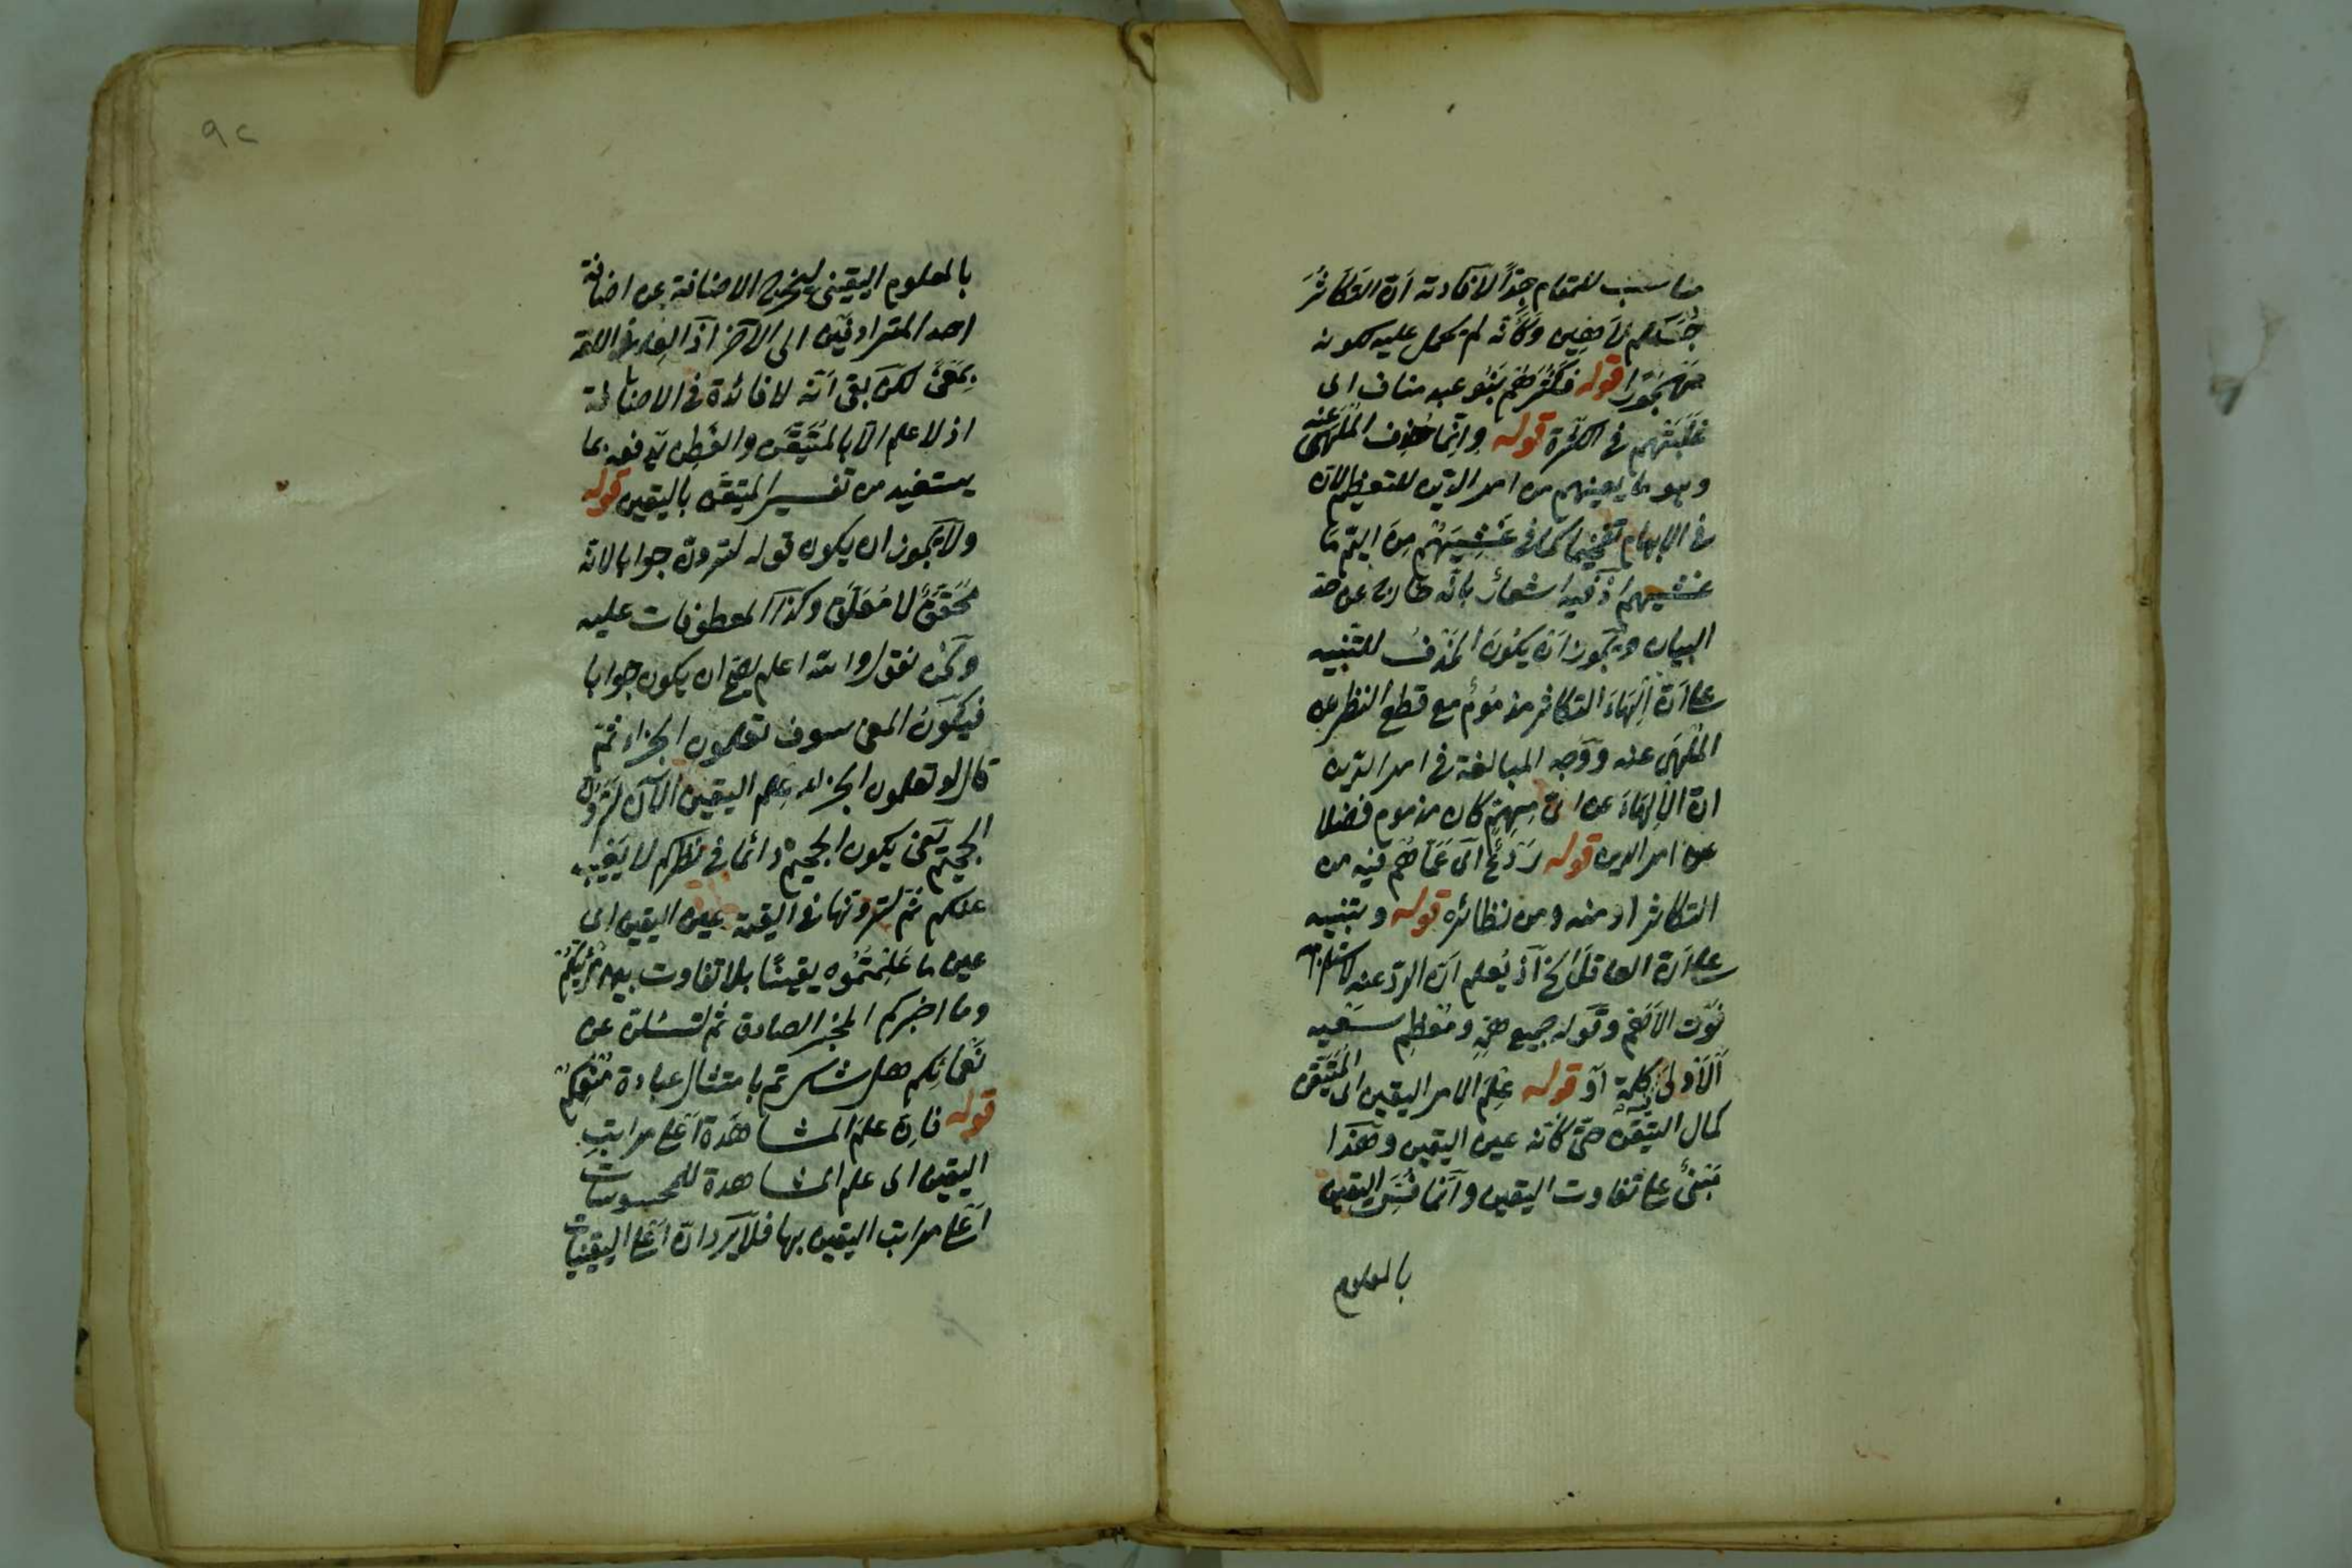 مناسب للمقام جدّا لافادته انّ التكاثر
جسدهم لاهين وكانّه لم يحمل عليه لكونه
مهجورا قوله فكثرهم بنو عبد مناف اى
غلبتهم فى الكثرة قوله وانّما حذف الملهى عنه
وهو ما يعينهم من امر الدّين للتعظيم لان
فى الابهام تفخيما كما فى غشيهم من اليمّ ما
غشيهم اذ فيه اشعار بانّه خارج عن حد
البيان ويجوز ان يكون الحذف للتنبيه
على انّ الهاء التكاثر مذموم مع قطع النظر عن
الملهى عنه ووجه المبالغة فى امر الدّين
انّ الالهاء عن اىّ مهمّ كان مذموم فضلا
عن امر الدين قوله ردع اى عمّا هم فيه من
التكاثر او منه ومن نظائره قوله وتنبيه
على انّ العاقل الخ اذ يعلم انّ الردّ عنه لاستلزامه
فوت الاهم وقوله جميع همّه ومعظم سعيه
الاولى كلمة او قوله علم الامر اليقين اى المتيقن
كمال التيقن حتى كانّه عين اليقين وهذا
مبنىّ على تفاوت اليقين وانما فسّر اليقين
بالمعلوم
٩٢
بالمعلوم اليقينى ليخرج الاضافة عن اضافة
احد المترادفين الى الآخر اذ العلم فى اللغة
بمعنى لكن بقى انّه لا فائدة فى الاضافة
اذ لا علم الا بالمتيقن والفطن يدفعه بما
يستفيد من تفسير المتيقن باليقين قوله
ولا يجوز ان يكون قوله لترون جوابا لانّه
محقق لا معلق وكذا المعطوفات عليه
ونحن نقول والله اعلم يصح ان يكون جوابا
فيكون المعنى سوف تعلمون الجزاء ثم
قال لو تعلمون الجزاء علم اليقين الآن لترون
الجحيم يعنى يكون الجحيم دائما فى نظركم لا يغيب
عنكم ثم لترونها فى القيمة عين اليقين اى
عين ما علمتموه يقينًا بلا تفاوت بين مرئيكم
وما اخبركم المخبر الصادق ثم لتسئلن عن
نعمائكم هل شكرتم بامتثال عبادة منعمكم
قوله فان علم المشاهدة اعلى مراتب
اليقين اى علم المشاهدة للمحسوسات
اعلى مراتب اليقين بها فلا يرد انّ اعلى اليقينيات